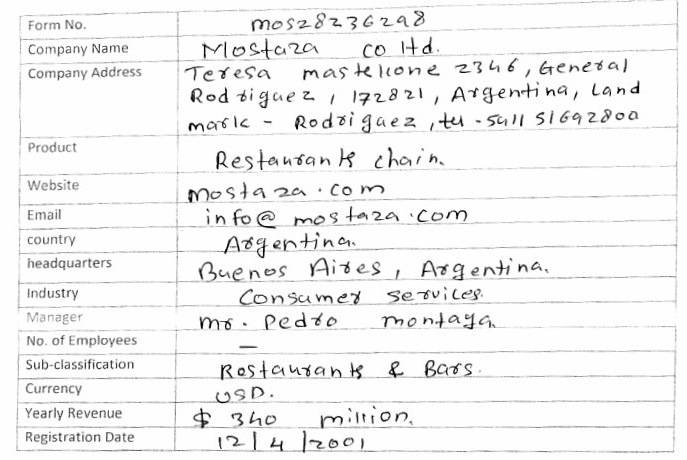 Form No. mos28236298
Company Name Mostaza co ltd.
Company Address Teresa mastellone 2346, General
Rodriguez, 172821, Argentina, Land
mark - Rodriguez, tel - 5411 51692800
Product Restaurants chain.
Website mostaza.com
Email info@mostaza.com
country Argentina.
headquarters Buenos Aires, Argentina.
Industry Consumer services.
Manager mr. Pedro montaya
No. of Employees —
Sub-classification Restaurants & Bars.
Currency USD.
Yearly Revenue $ 340 million.
Registration Date 12/4/2001